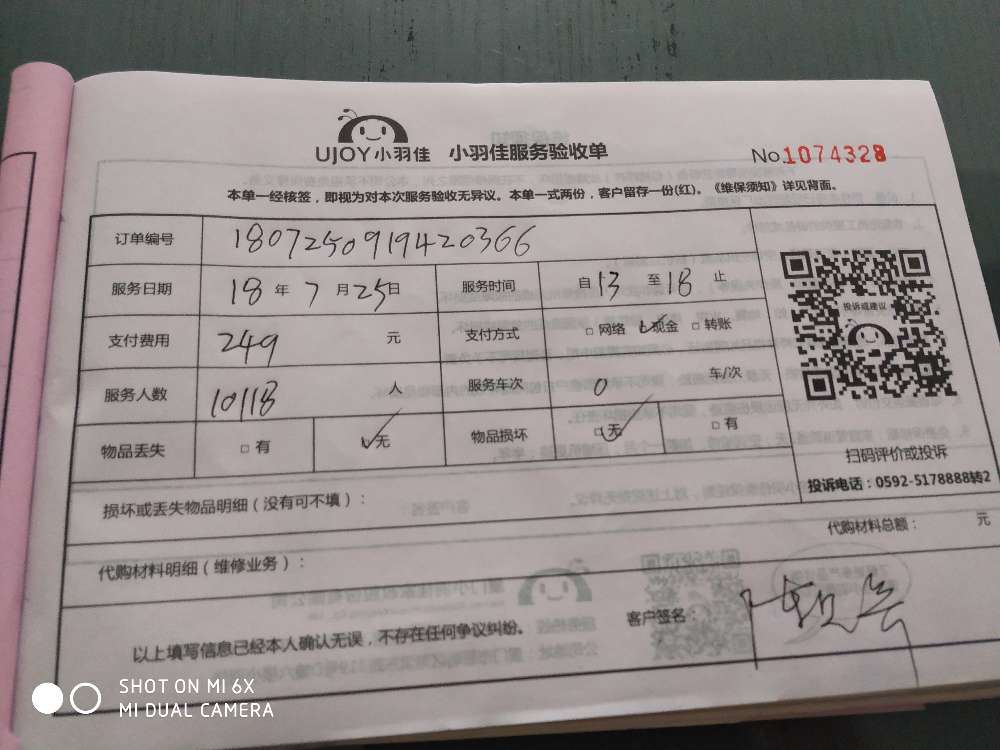 UJOY小羽佳 小羽佳服务验收单 No.1074328
本单一经核签，即视为对本次服务验收无异议。本单一式两份，客户留存一份(红)。《维保须知》详见背面。
订单编号 1807250919420366
服务日期 18年7月25日 服务时间 自13至18止
支付费用 249元 支付方式 □网络 ☑现金 □转账
服务人数 10118人 服务车次 0车/次
物品丢失 □有 ☑无 物品损坏 ☑无 □有
投诉或建议
扫码评价或投诉
投诉电话：0592-5178888转2
损坏或丢失物品明细（没有可不填）：
代购材料总额： 元
代购材料明细（维修业务）：
以上填写信息已经本人确认无误，不存在任何争议纠纷。 客户签名：
SHOT ON MI 6X
MI DUAL CAMERA